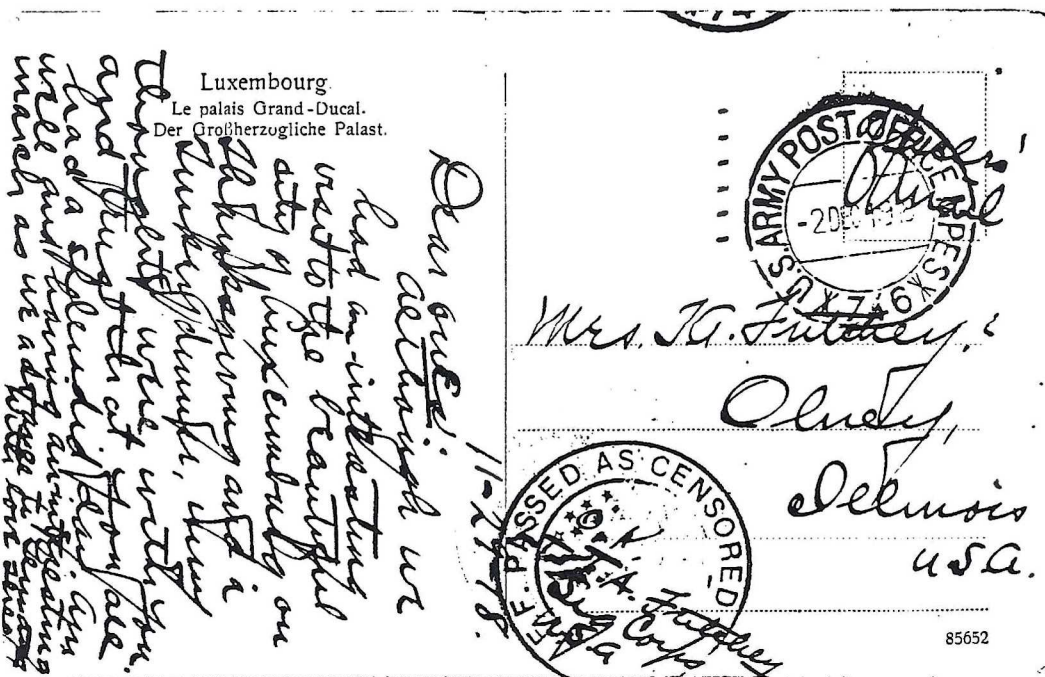 Luxembourg.
Le palais Grand-Ducal.
Der Großherzogliche Palast.
11-29-18.
Dear ones:
Although we
had an interesting
visit to the beautiful
city of Luxemburg on
Thanksgiving and a
turkey dinner, my
thoughts were with you
and
had a splendid day. Am
well and having an interesting
march as we advance
With love
U.S. ARMY POST OFFICE M.P.E.S.
Officers'
Mail
Mrs. J.A. Futchey,
Olney,
Illinois
U.S.A.
A.E.F. PASSED AS CENSORED
O.K.
J.A. Futchey
Corps
85652